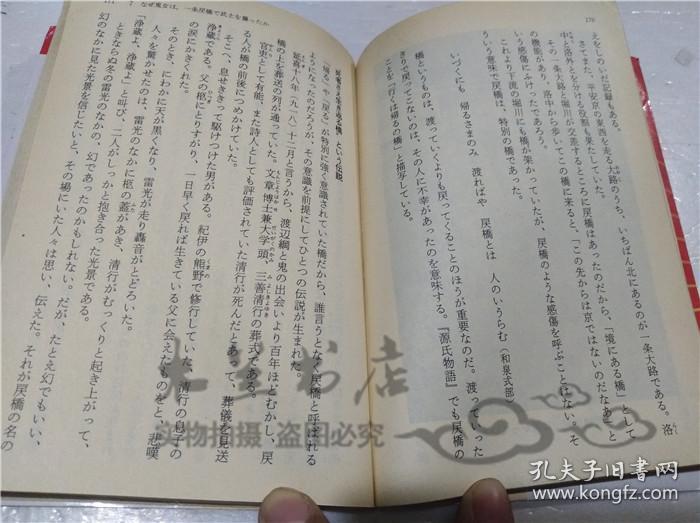 170
えをしのいだ記録もある。
さてまた、平安京の東西を走る大路のうち、いちばん北にあるのが一条大路である。洛
中と洛外とを分ける役割も果たしていた。
その一条大路と堀川が交差するところに戻橋はあったのだから、「境にある橋」として
の機能があり、洛中から歩いてこの橋に来ると、「この先からは京ではないのだなあ」と
いう感傷にふけったであろう。
これより下流の堀川にも橋が架かっていたが、戻橋のような感傷を呼ぶことはない。そ
ういう意味で戻橋は、特別の橋であった。
いづくにも　帰るさまのみ　渡ればや　戻橋とは　人のいうらむ（和泉式部）
橋というものは、渡っていくよりも戻ってくることのほうが重要なのだ。渡っていった
きり戻ってこないのは、その人に不幸があったのを意味する。『源氏物語』でも戻橋の
ことを「行くは帰るの橋」と描写している。
7　なぜ鬼女は、一条戻橋で武士を襲ったか
死者さえ生き返る橋、という伝説
「帰る」や「戻る」が特別に強く意識されていた橋だから、誰言うとなく戻橋と呼ばれる
ようになったのだろうが、その意識を前提にしてひとつの伝説が生まれた。
延喜十八年（九一八）十二月と言うから、渡辺綱と鬼の出会いより百年ほどむかし、戻
橋の上を葬送の列が通っていた。文章博士兼大学頭、三善清行の葬式である。
官吏として有能、また詩人としても評価されていた清行が死んだとあって、葬儀を見送
る人が橋の前後につめかけていた。
そこへ、息せききって駆けつけた男がある。紀伊の熊野で修行していた、清行の息子の
浄蔵である。父の柩にとりすがり、一日早く戻れば生きている父に会えたものをと、悲嘆
の涙にかきくれた。
そのとき、にわかに天が黒くなり、雷光が走り轟音がとどろいた。
人々を驚かせたのは、雷光のなかに柩の蓋があき、清行がむっくりと起き上がって、
「浄蔵、浄蔵よ」と叫び、二人がしっかと抱き合った光景である。
ときならぬ冬の雷光のなかの、幻であったのかもしれない。だが、たとえ幻でもいい、
幻のなかに見た光景を信じたいと、その場にいた人々は思い、伝えた。それが戻橋の名の
七星书店
实物拍摄 盗图必究
孔夫子旧书网
www.kongfz.com